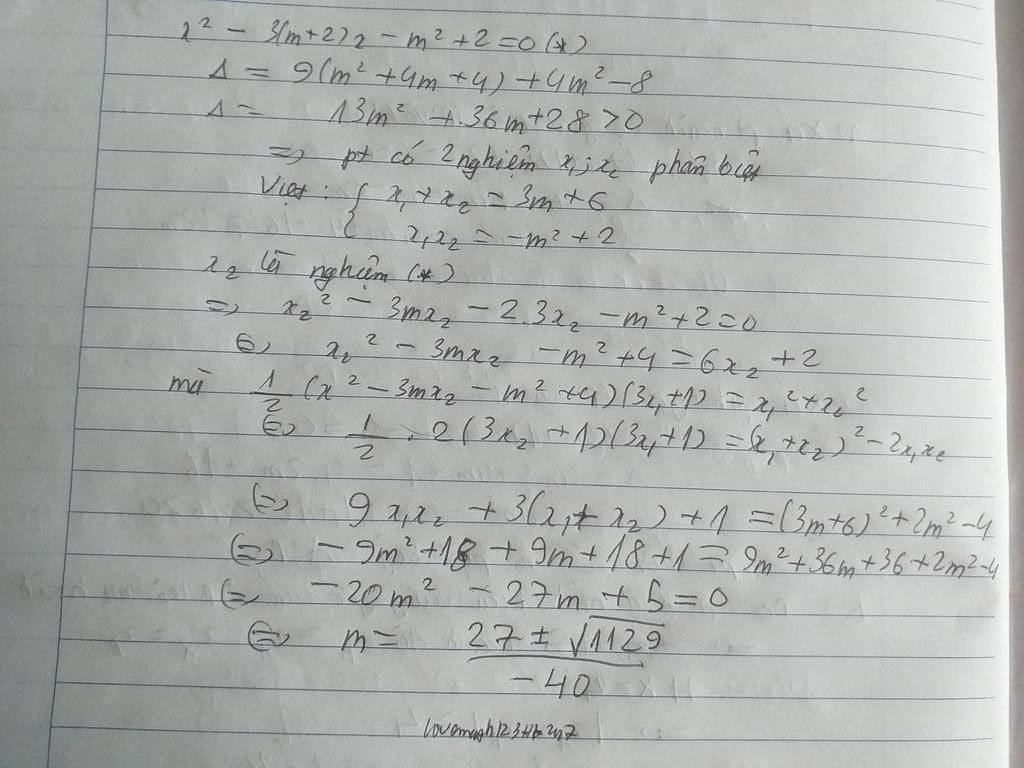 x² - 3(m+2)x - m² + 2 = 0 (*)
Δ = 9(m² + 4m + 4) + 4m² - 8
Δ = 13m² + 36m + 28 > 0
=> pt có 2 nghiệm x₁; x₂ phân biệt
Viet: { x₁ + x₂ = 3m + 6
x₁x₂ = -m² + 2
x₂ là nghiệm (*)
=> x₂² - 3mx₂ - 2.3x₂ - m² + 2 = 0
<=> x₂² - 3mx₂ - m² + 4 = 6x₂ + 2
mà 1/2 (x² - 3mx₂ - m² + 4)(3x₁+1) = x₁² + x₂²
<=> 1/2 . 2(3x₂ + 1)(3x₁+1) = (x₁+x₂)² - 2x₁x₂
<=> 9x₁x₂ + 3(x₁ + x₂) + 1 = (3m+6)² + 2m² - 4
<=> -9m² + 18 + 9m + 18 + 1 = 9m² + 36m + 36 + 2m² - 4
<=> -20m² - 27m + 5 = 0
<=> m = (27 ± √1129) / -40